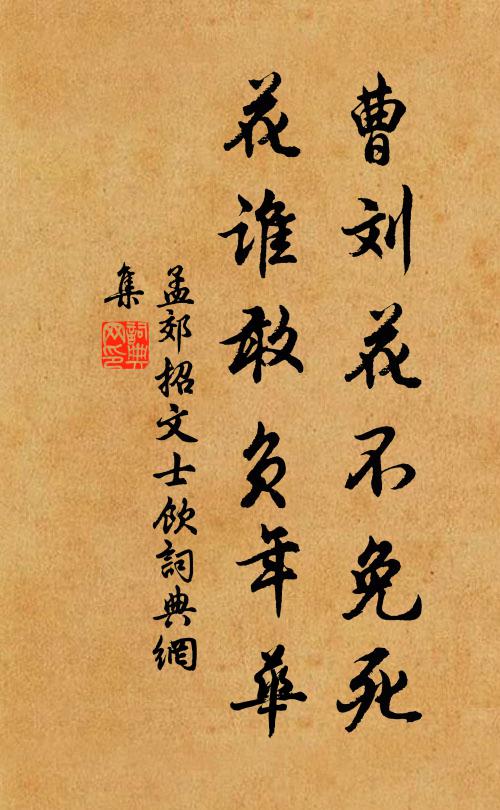 曹刘花不免死
花谁敢负年华
孟郊招文士飲詞典網
集
詞典网印